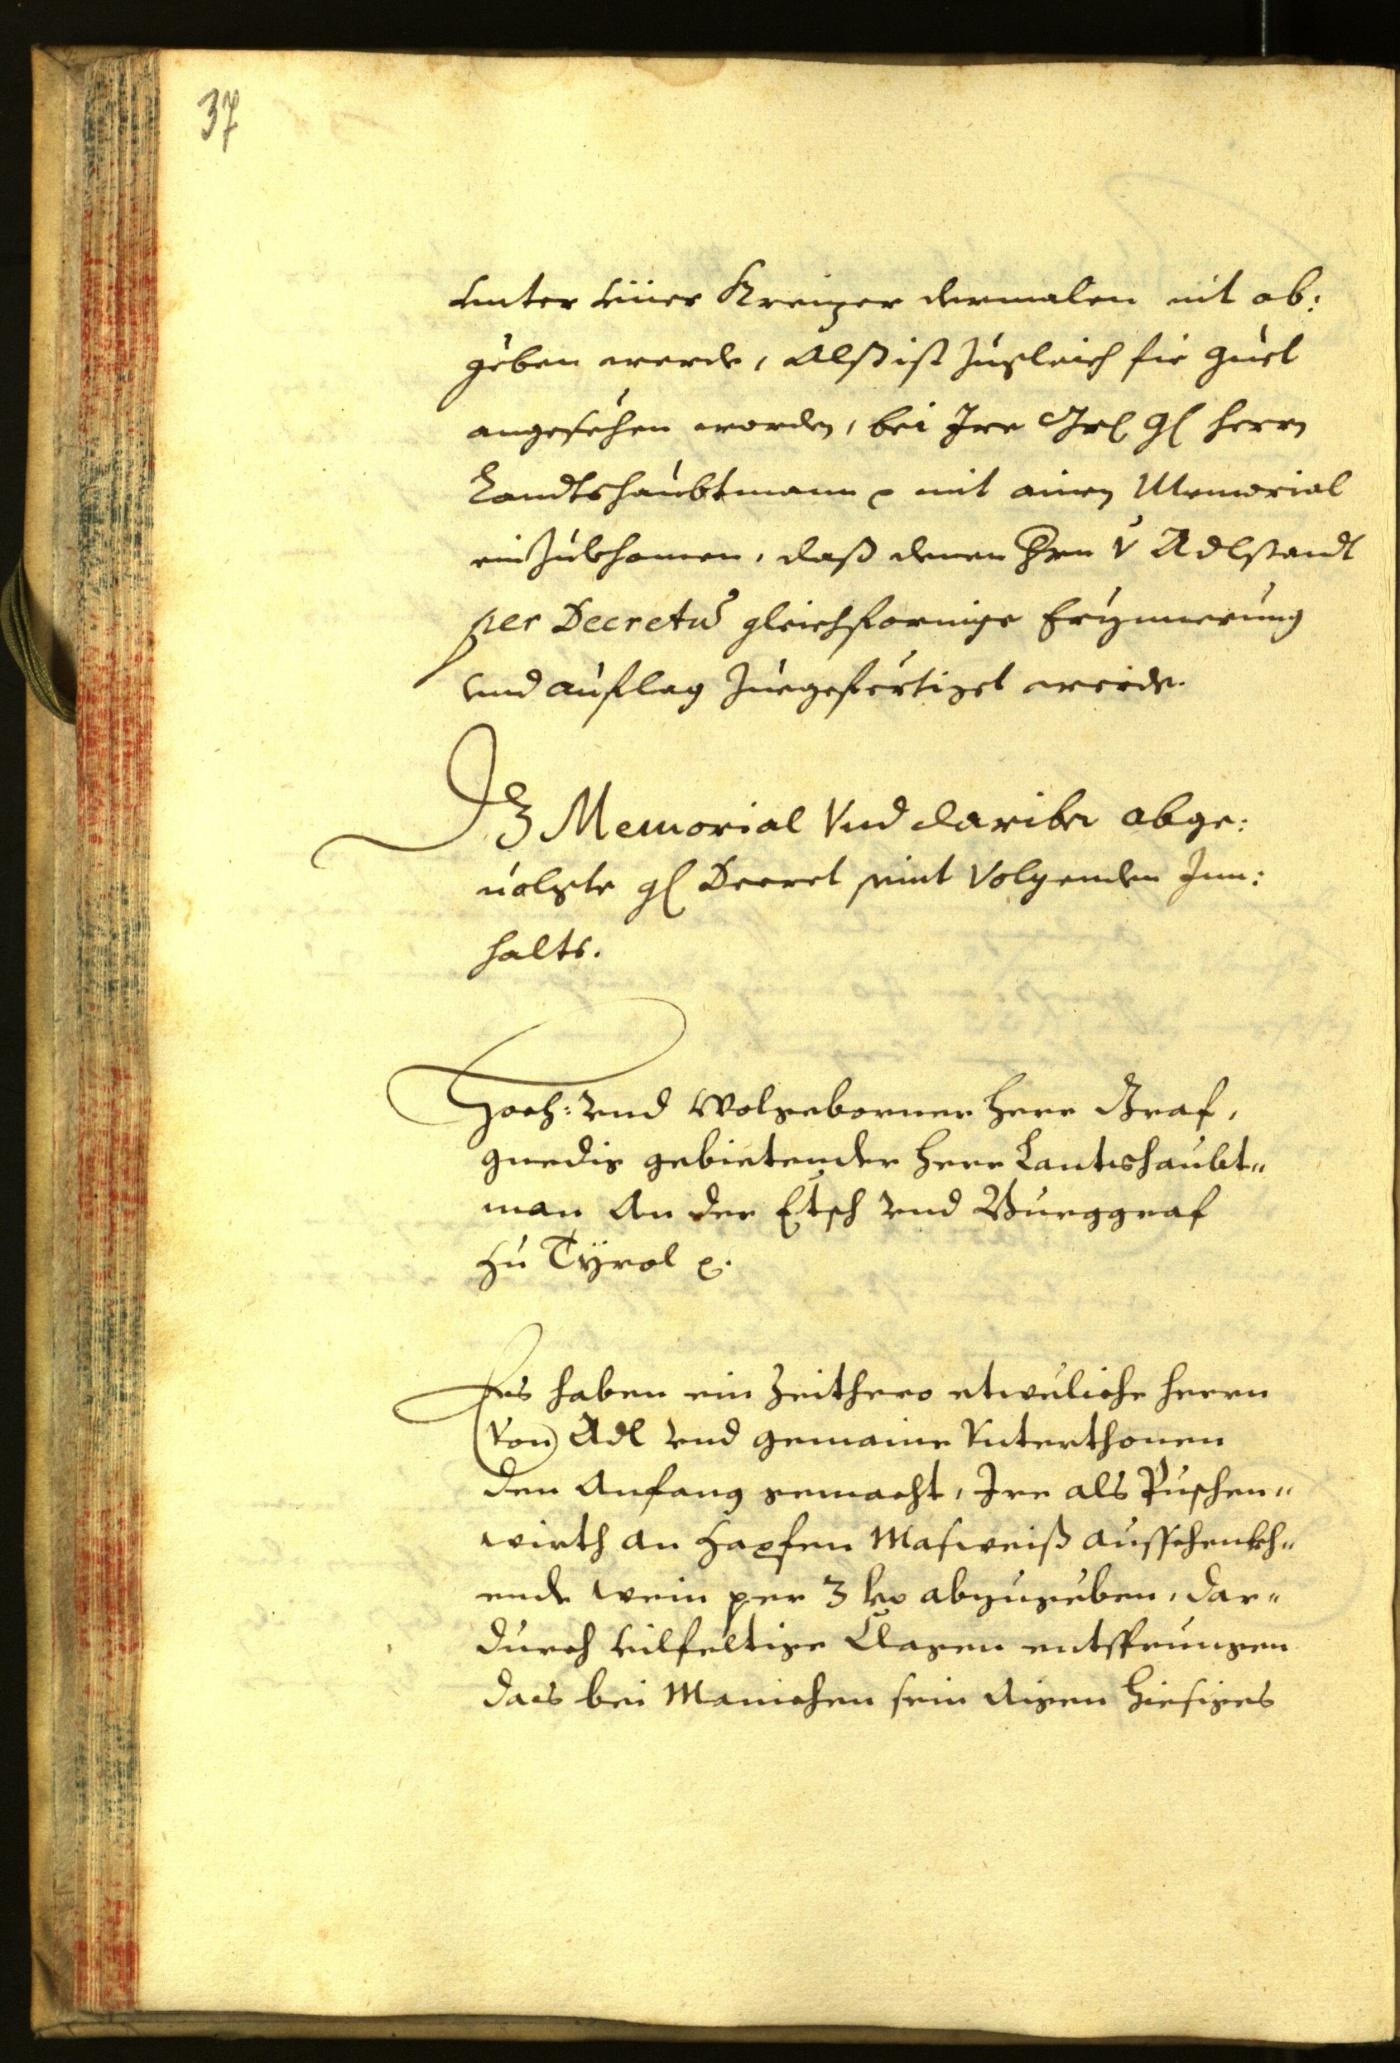 37
unter vier Kreizer dermalen nit ab:
geben werde, Alß ist zugleich fir guet
angesehen worden, bei Jre Grl Gl herrn
Landtshaubtmann mit ainen Memorial
einzukhomen, daß denen Hrn v Adlstandt
per Decretu gleichformige Erynnerung
und auflag zuegefertiget werde.
Dz Memorial Vnd dariber abge:
uolgte gl Decret seint Volgenden Inn:
halts.
Hoch: und Wolgeborner herr Graf,
gnedig gebietender herr Lantshaubt"
man An der Etsch vnd Burggraf
zu Tÿrol
Es haben ein Zeithero etweliche herrn
von Adl vnd gemaine Vnterthonen
den Anfang gemacht, Jre als Puschen"
wirth an Zapfen Masweiß ausschenkh"
ende wein per 3 kr abzugeben, dar"
durch vilfeltige Clagen entsprungen
das bei Manichen sein Aigen hiesiges